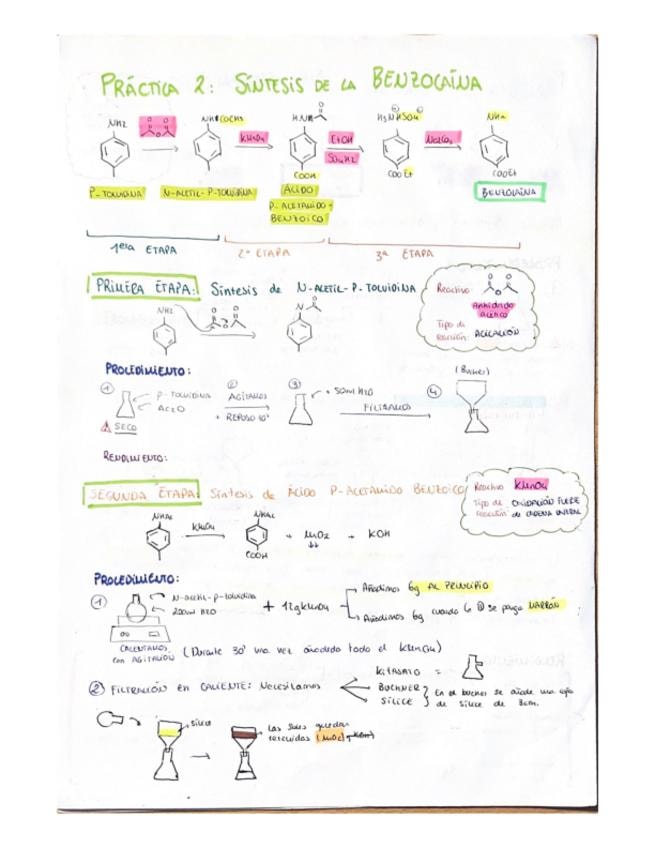 PRÁCTICA 2: SÍNTESIS DE LA BENZOCAÍNA
NH2
NHCOCH3
KMnO4
HN
COOH
EtOH
SO4H2
H3N HSO4
COOEt
Na2CO3
NH2
COOEt
P-TOLUIDINA
N-ACETIL-P-TOLUIDINA
ÁCIDO
P-ACETAMIDO-
BENZOICO
BENZOCAÍNA
1era ETAPA
2ª ETAPA
3ª ETAPA
PRIMERA ETAPA: Síntesis de N-ACETIL-P-TOLUIDINA
NH2
Reactivo:
Anhídrido
acético
Tipo de
reacción: ACILACIÓN
PROCEDIMIENTO:
① P-TOLUIDINA
Ac2O
⚠ SECO
② AGITAMOS
+ REPOSO 10'
③ + 50ml H2O
FILTRAMOS
④
(Buchner)
RENDIMIENTO:
SEGUNDA ETAPA: Síntesis de ÁCIDO P-ACETAMIDO BENZOICO
Reactivo KMnO4
Tipo de OXIDACIÓN FUERTE
reacción de CADENA LATERAL
NHAc
KMnO4
NHAc
COOH
+ MnO2 + KOH
↓↓
PROCEDIMIENTO:
① N-acetil-p-toluidina
200ml H2O
+ 12g KMnO4
Añadimos 6g AL PRINCIPIO
Añadimos 6g cuando se ponga MARRÓN
CALENTAMOS
con AGITACIÓN
(Durante 30' una vez añadido todo el KMnO4)
② FILTRACIÓN EN CALIENTE: Necesitamos
KITASATO =
BUCHNER
SÍLICE
En el buchner se añade una capa
de sílice de 3cm.
sílice
Las sales quedan
retenidas (MnO2)